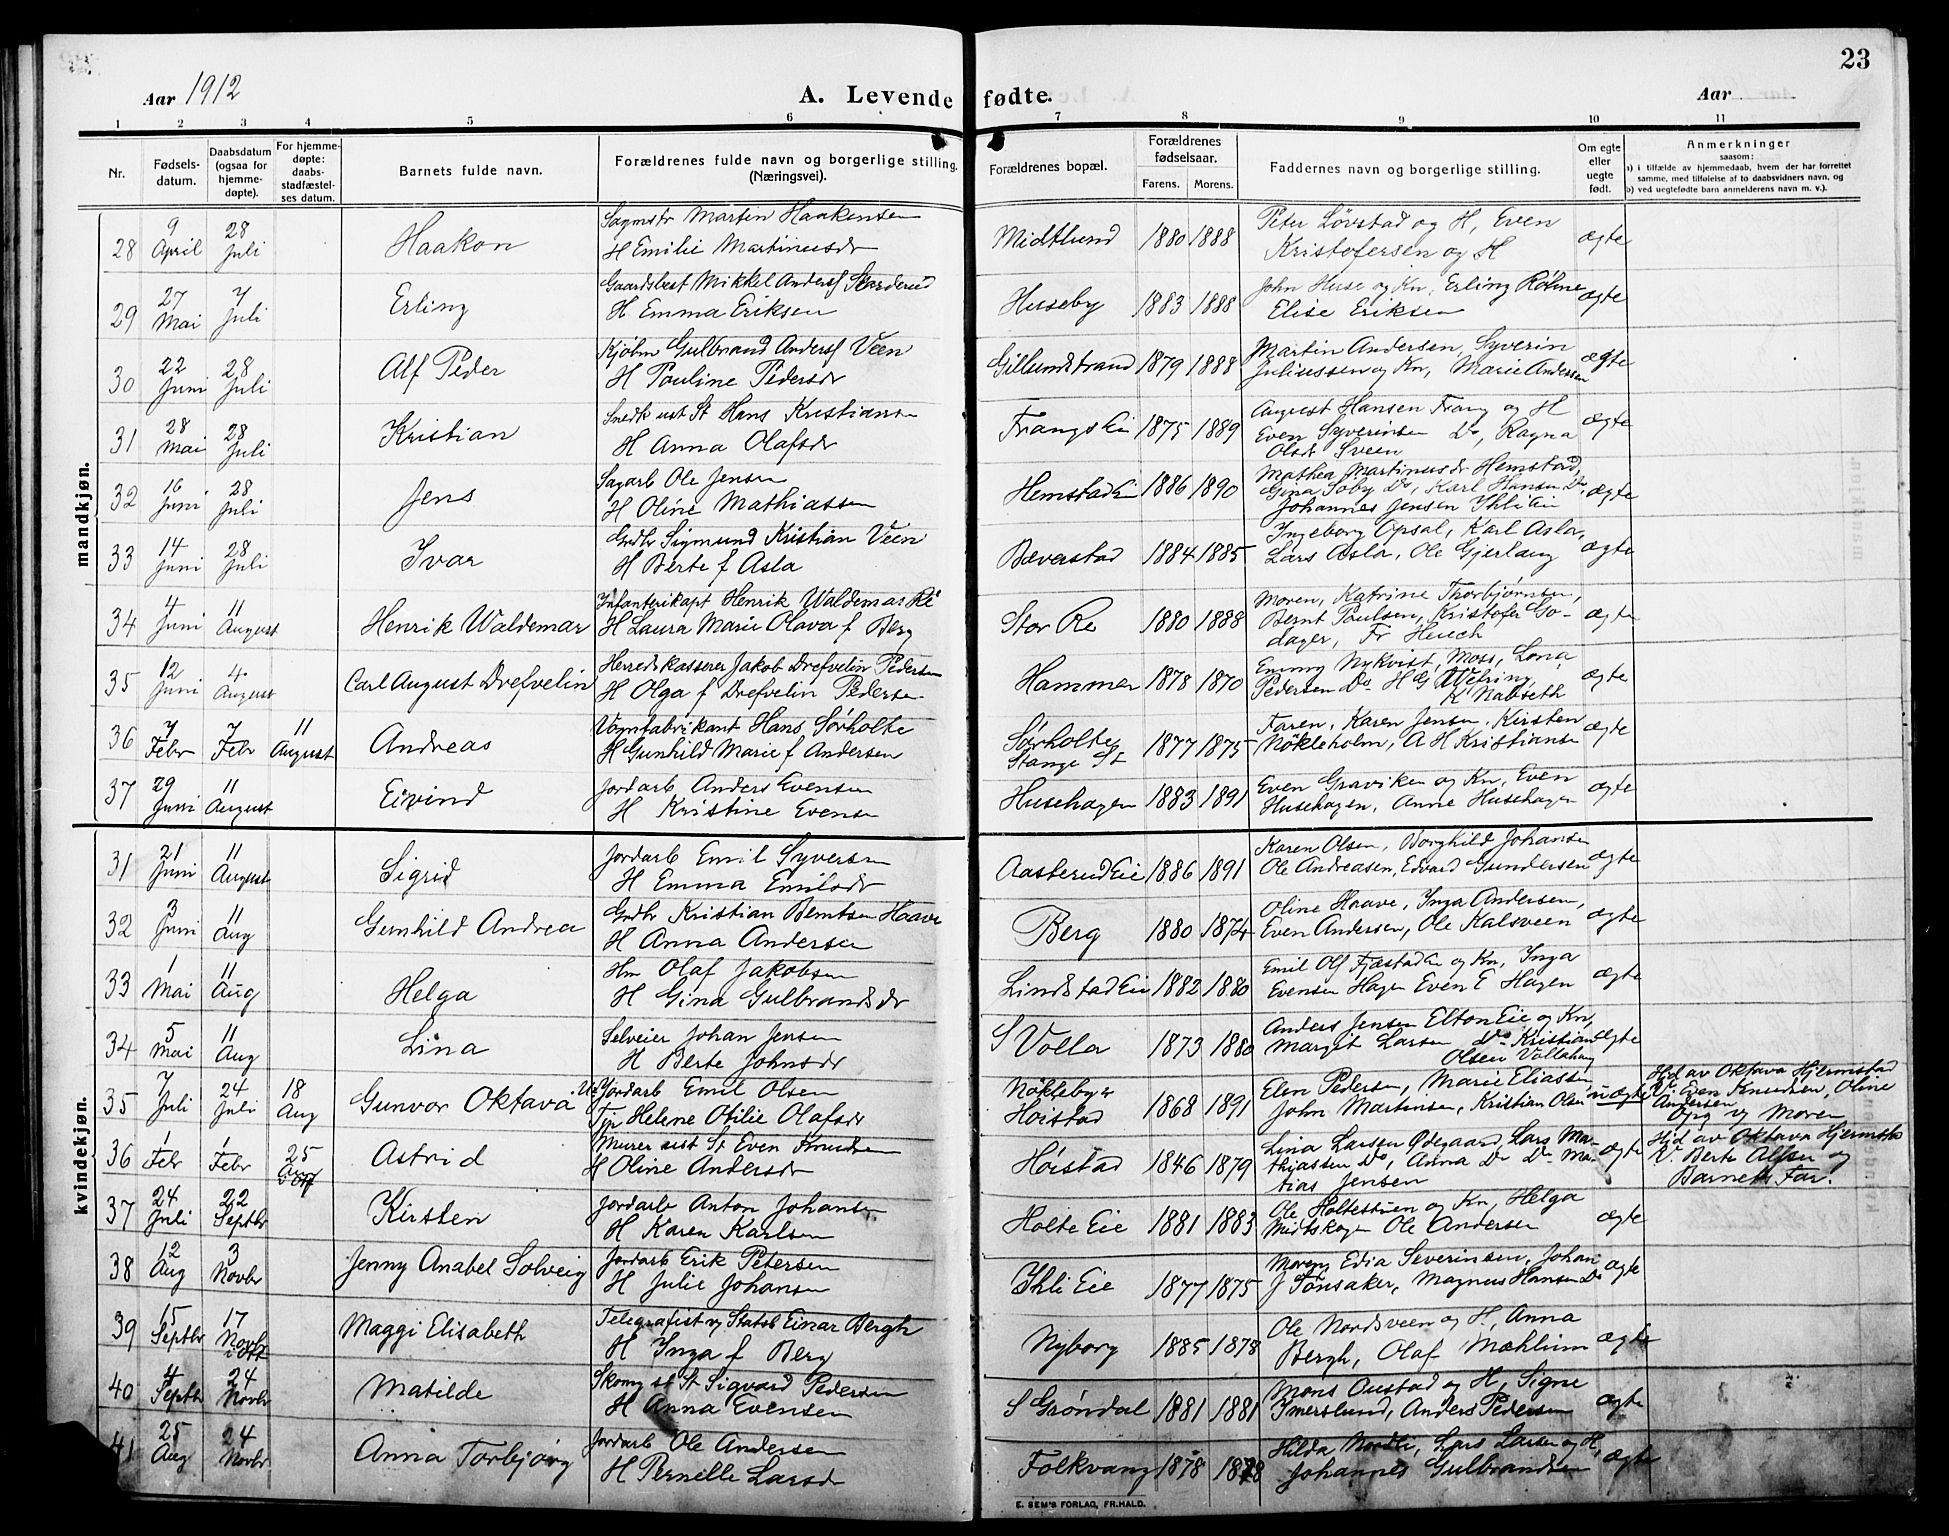 23
Aar 1912
A. Levende fødte.
Aar
1 2 3 4 5 6 7 8 9 10 11
Nr.
Fødselsdatum.
Daabsdatum (ogsaa for hjemmedøpte).
For hjemmedøpte: daabsstadfæstelses datum.
Barnets fulde navn.
Forældrenes fulde navn og borgerlige stilling. (Næringsvei).
Forældrenes bopæl.
Forældrenes fødselsaar.
Farens. Morens.
Faddernes navn og borgerlige stilling.
Om egte eller uegte født.
Anmerkninger
saasom:
a) i tilfælde av hjemmedaab, hvem der har forrettet samme, med tilføielse af to daabsvidners navn, og
b) ved uegtefødte barn anmelderens navn m. v.).
mandkjøn.
28 9 April 28 Juli Haakon Sagmstr Martin Haakensen H Emilie Martinusdr Midtlund 1880 1888 Peter Løvstad og H, Even Kristofersen og H ægte
29 27 Mai 7 Juli Erling Gaardsbest Mikkel Andersf Skarderud H Emma Eriksen Huseby 1883 1888 John Huse og Kn, Erling Röhne Elise Eriksen ægte
30 22 Juni 28 Juli Alf Peder Kjøbm Gulbrand Andersf Veen H Pauline Pedersdr Gillundstrand 1879 1888 Martin Andersen, Syverin Juliussen og Kn, Marie Andersen ægte
31 28 Mai 28 Juli Kristian Snedk ust St Hans Kristiansen H Anna Olafsdr Frangs Ei 1875 1889 August Hansen Frang og H Even Syverinsen Do, Ragna Olsdr Sveen ægte
32 16 Juni 28 Juli Jens Sagarb Ole Jensen H Oline Mathiassen Hemstad Ei 1886 1890 Mathea Martinusdr Hemstad, Gina Søby Do, Karl Hansen Do, Johannes Jensen Ihli Ei ægte
33 14 Juni 28 Juli Ivar Grdbr Sigmund Kristian Veen H Berte f Asla Bæverstad 1884 1885 Ingeborg Opsal, Karl Asla, Lars Asla, Ole Gjerlaug ægte
34 4 Juni 11 August Henrik Waldemar Infanterikapt Henrik Waldemar Re H Laura Marie Olava f Berg Stor Re 1880 1888 Moren, Katrine Thorbjørnsen, Bernt Paulsen, Kristofer Godager, Fr Heuch ægte
35 12 Juni 4 August Carl August Drefvelin Herredskasserer Jakob Drefvelin Pedersen H Olga f Drefvelin Pedersen Hammer 1878 1870 Emmy Nykvist, Moss, Lona Pedersen Do H G Wefring, K Nabseth ægte
36 7 Febr 7 Febr 11 August Andreas Vognfabrikant Hans Sørholte H Gunhild Marie f Andersen Sørholte Stange St 1877 1875 Faren, Karen Jensen, Kirsten Nökleholm, A H Kristiansen ægte
37 29 Juni 11 August Eivind Jordarb Anders Evensen H Kristine Evensen Husehagen 1883 1891 Even Graviken og Kn, Even Husehagen, Anne Husehagen ægte
kvindekjøn.
31 21 Juni 11 August Sigrid Jordarb Emil Syversen H Emma Emilsdr Aasterud Eie 1886 1891 Karen Olsen, Borghild Johansen Ole Andreasen, Edvard Gundersen ægte
32 3 Juni 11 Aug Gunhild Andrea Grdbr Kristian Berntsen Haave H Anna Andersen Berg 1880 1874 Oline Haave, Inga Andersen, Even Andersen, Ole Kalsveen ægte
33 1 Mai 11 Aug Helga Hm Olaf Jakobsen H Gina Gulbrandsdr Lindstad Eie 1882 1880 Emil Olf Fjæstad Ei og Kn, Inga Evensen Hagen Even E Hagen ægte
34 5 Mai 11 Aug Lina Selveier Johan Jensen H Berte Johnsdr S Volla 1873 1880 Anders Jensen Elton Eie og Kn, Margit Larsen Do Kristian Olsen Vollahaug ægte
35 7 Juli 24 Juli 18 Aug Gunvor Oktava Uæ Jordarb Emil Olsen Tp Helene Otilie Olafsdr Nökleby Höistad 1868 1891 Elen Pedersen, Marie Eliassen John Martinsen, Kristian Olsen uægte Hjd av Oktava Hjermstad V. Even Knudsen, Oline Andersen Opg og Moren
36 1 Febr 1 Febr 25 Aug Astrid Murer ust St Even Knudsen H Oline Andersdr Höistad 1846 1879 Lina Larsen Ødegaard, Lars Mathiassen Do, Anna Do Do Matias Jensen ægte Hjd av Oktava Hjermstad V. Berte Alfsen og Barnets Far.
37 24 Juli 22 Septbr Kirsten Jordarb Anton Johansen H Karen Karlsen Holte Eie 1881 1883 Ole Holtestuen og Kn, Helga Midtskogen Ole Andersen ægte
38 12 Aug 3 Novbr Jenny Anabel Solveig Jordarb Erik Petersen H Julie Johansen Ihli Eie 1877 1875 Moren, Edia Severinsen, Johan J Tönsaker, Magnus Hansen Do ægte
39 15 Septbr 17 Novbr Maggi Elisabeth Telegrafist v Statsb Einar Bergh H Inga f Berg Nyborg 1885 1878 Ole Nordsveen og H, Anna Bergh, Olaf Mæhlum ægte
40 4 Septbr 24 Novbr Matilde Skomg st St Sigvard Pedersen H Anna Evensen S Grøndal 1881 1881 Mons Oustad og H, Signe Imerslund, Anders Pedersen ægte
41 25 Aug 24 Novbr Anna Torbjørg Jordarb Ole Andersen H Pernelle Larsdr Folkvang 1878 1878 Hilda Nordli, Lars Larsen og H, Johannes Gulbrandsen ægte
E. SEM'S FORLAG, FR.HALD.